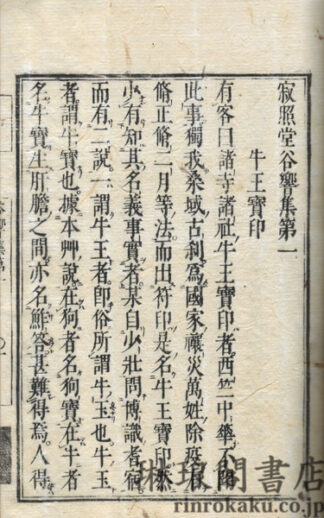 寂照堂谷響集第一
牛王寶印
有客曰諸寺諸社牛王寶印者西竺中華不聞
此事獨我桑域古刹爲國家禳災萬姓除疫有
脩正脩二月等法而出符印是名牛王寶印然
少有知其名義事實者某自少壯問博識者宿
而有二說一謂牛王者即俗所謂牛玉也牛玉
者謂牛寶也據本艸說在狗者名狗寶在牛者
名牛寶生肝膽之間亦名鮓荅甚難得焉人得
琳琅閣書店
rinrokaku.co.jp